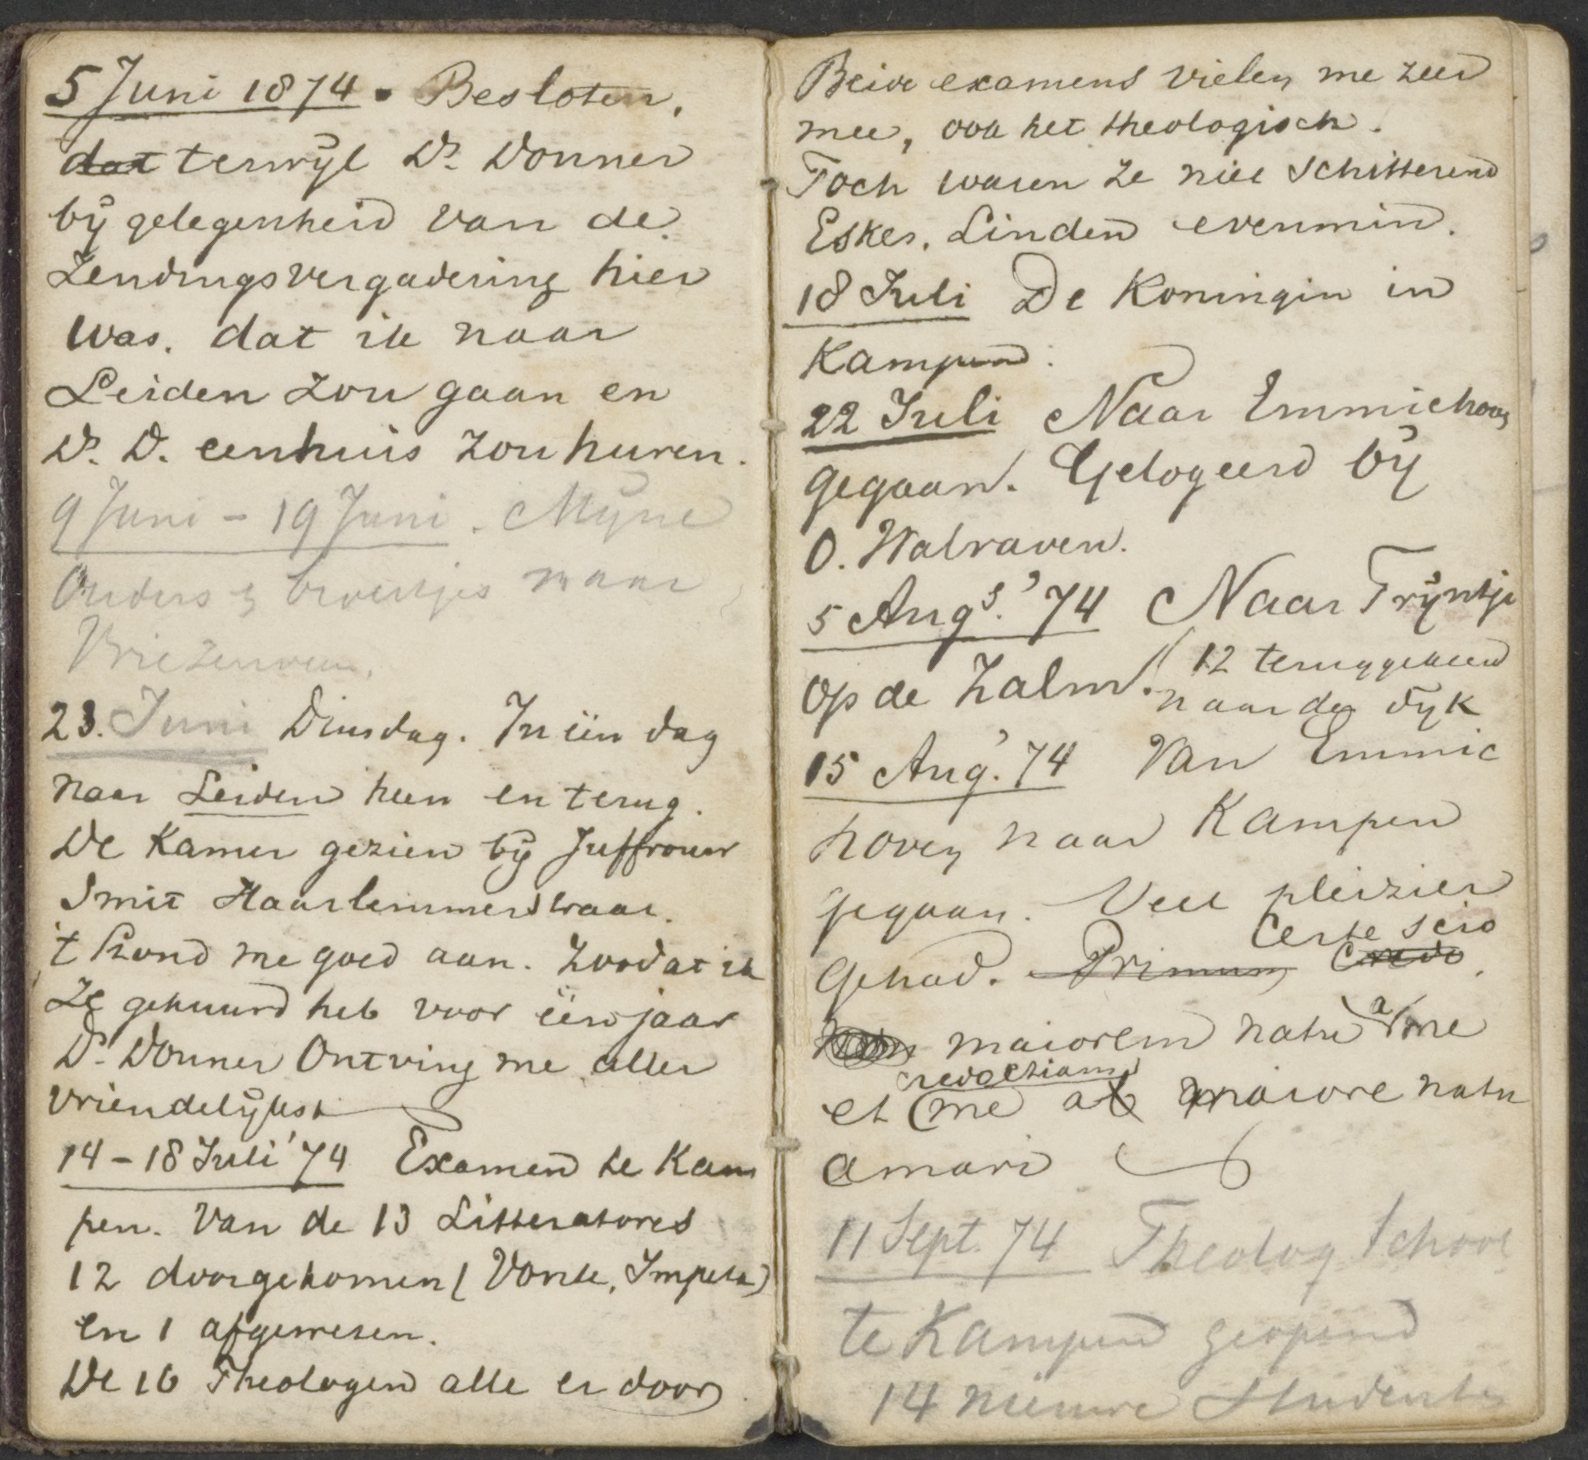 5 Juni 1874. Besloten,
dat terwijl Ds. Donner
bij gelegenheid van de
Zendingsvergadering hier
was, dat ik naar
Leiden zou gaan en
Ds. D. eenhuis zou huren.
9 Juni - 19 Juni. Mijne
Ouders & broertjes naar
Vriezenveen.
23. Juni Dinsdag. In één dag
naar Leiden heen en terug.
De Kamer gezien bij Juffrouw
Smit Haarlemmerstraat.
't Stond me goed aan. Zoodat ik
ze gehuurd heb voor één jaar
Ds. Donner Ontving me aller
vriendelijkst
14 - 18 Juli '74 Examen te Kam
pen. Van de 13 Litteratores
12 doorgekomen (Vonk, Impeta)
en 1 afgewezen.
De 16 Theologen alle er door
Beide examens vielen me zeer
mee, ook het theologisch.
Toch waren ze niet schitterend
Eskes, Linden evenmin.
18 Juli De Koningin in
Kampen.
22 Juli Naar Emmichoven
gegaan. Gelogeerd bij
O. Walraven.
5 Augs. '74 Naar Trijntje
op de Zalm. (12 teruggekeerd
naar den dijk
15 Aug. '74 Van Emmic
hoven naar Kampen
gegaan. Veel pleizier
Certe scio
gehad. Primum Credo,
maiorem natu a me
credo etiam
et (me ab maiore natu
amari
11 Sept. 74 Theolog School
te Kampen geopend
14 nieuwe Studenten